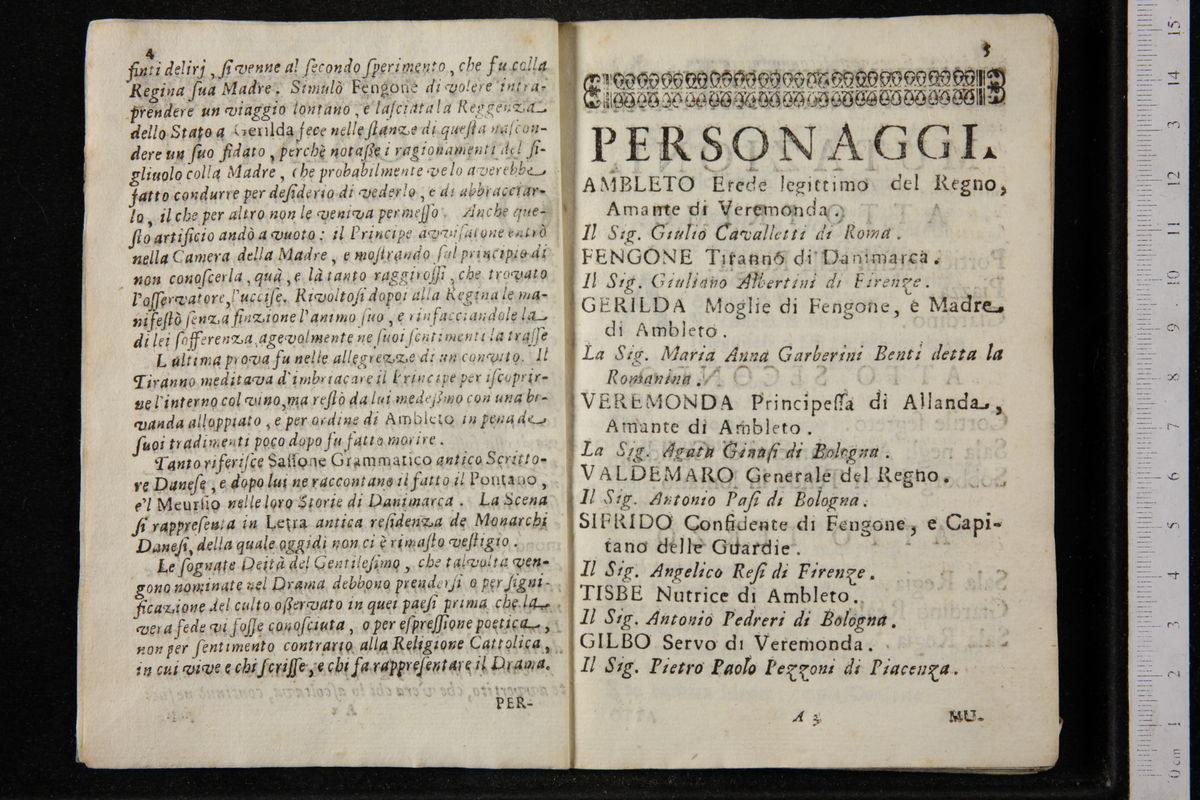 4
finti delirj, ſi venne al ſecondo ſperimento, che fu colla
Regina ſua Madre. Simulò Fengone di volere intra-
prendere un viaggio lontano, e laſciata la Reggenza
dello Stato a Gerilda fece nelle ſtanze di queſta naſcon-
dere un ſuo fidato, perchè notaſſe i ragionamenti del fi-
gliuolo colla Madre, che probabilmente ve lo averebbe
fatto condurre per deſiderio di vederlo, e di abbracciar-
lo, il che per altro non le veniva permeſſo. Anche que-
ſto artificio andò a vuoto: il Principe avviſatone entrò
nella Camera della Madre, e moſtrando ſul principio di
non conoſcerla, quà, e là tanto raggiroſſi, che trovato
l'oſſervatore, l'ucciſe. Rivoltoſi dopoi alla Regina le ma-
nifeſtò ſenza finzione l'animo ſuo, e rinfacciandole la
di lei ſofferenza agevolmente ne ſuoi ſentimenti la traſſe
L ultima prova fu nelle allegrezze di un convito. Il
Tiranno meditava d'imbriacare il Principe per iſcoprir-
ne l'interno col vino, ma reſtò da lui medeſimo con una be-
vanda alloppiato, e per ordine di Ambleto in pena de
ſuoi tradimenti poco dopo fu fatto morire.
Tanto riferiſce Saſſone Grammatico antico Scritto-
re Daneſe, e dopo lui ne raccontano il fatto il Pontano,
e'l Meurſio nelle loro Storie di Danimarca. La Scena
ſi rappreſenta in Letra antica reſidenza de Monarchi
Daneſi, della quale oggidì non ci è rimaſto veſtigio.
Le ſognate Deità del Gentileſimo, che talvolta ven-
gono nominate nel Drama debbono prenderſi o per ſigni-
ficazione del culto oſſervato in quei paeſi prima che la
vera fede vi foſſe conoſciuta, o per eſpreſſione poetica,
non per ſentimento contrario alla Religione Cattolica,
in cui vive e chi ſcriſſe, e chi fa rappreſentare il Drama.
PER-
5
PERSONAGGI.
AMBLETO Erede legittimo del Regno,
Amante di Veremonda.
Il Sig. Giulio Cavalletti di Roma.
FENGONE Tiranno di Danimarca.
Il Sig. Giuliano Albertini di Firenze.
GERILDA Moglie di Fengone, e Madre
di Ambleto.
La Sig. Maria Anna Garberini Benti detta la
Romanina.
VEREMONDA Principeſſa di Allanda,
Amante di Ambleto.
La Sig. Agata Ginaſi di Bologna.
VALDEMARO Generale del Regno.
Il Sig. Antonio Paſi di Bologna.
SIFRIDO Confidente di Fengone, e Capi-
tano delle Guardie.
Il Sig. Angelico Reſi di Firenze.
TISBE Nutrice di Ambleto.
Il Sig. Antonio Pedreri di Bologna.
GILBO Servo di Veremonda.
Il Sig. Pietro Paolo Pezzoni di Piacenza.
A 3
MU-
0 cm 1 2 3 4 5 6 7 8 9 10 11 12 13 14 15